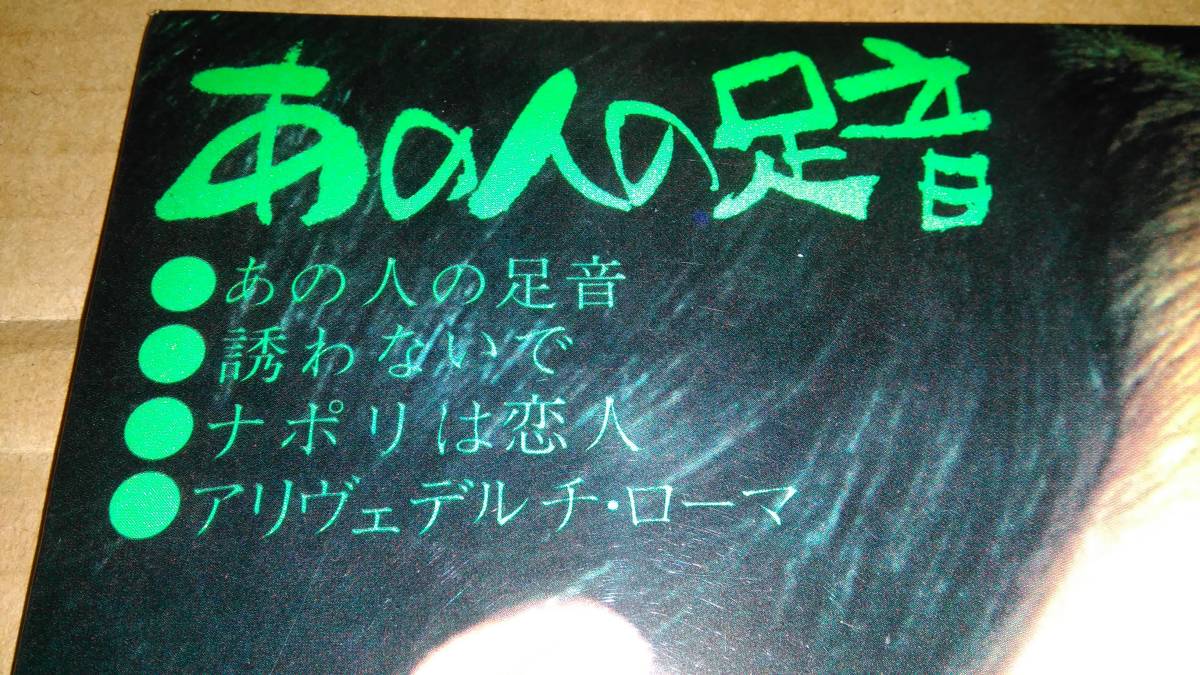 あの人の足音
●あの人の足音
●誘わないで
●ナポリは恋人
●アリヴェデルチ・ローマ